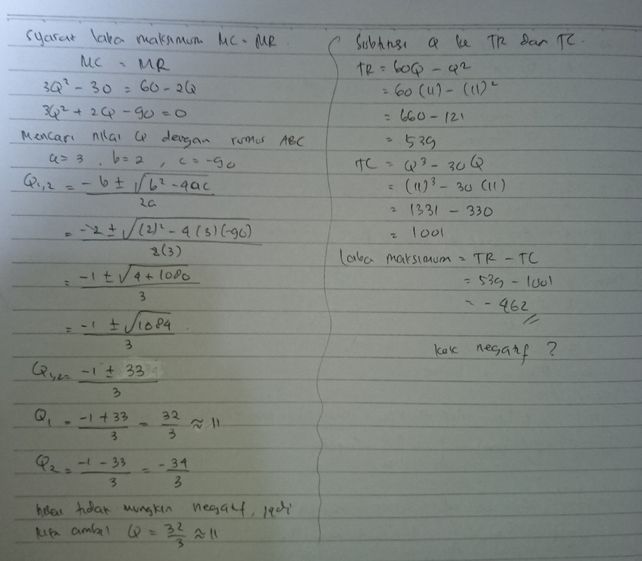 Syarat laba maksimum MC = MR
MC = MR
3Q² - 30 = 60 - 2Q
3Q² + 2Q - 90 = 0
Mencari nilai Q dengan rumus ABC
a = 3 , b = 2 , c = -90
Q₁,₂ = (-b ± √(b² - 4ac)) / 2a
= (-2 ± √((2)² - 4(3)(-90))) / 2(3)
= (-1 ± √(4 + 1080)) / 3
= (-1 ± √1084) / 3
Q₁,₂ = (-1 ± 33) / 3
Q₁ = (-1 + 33) / 3 = 32/3 ≈ 11
Q₂ = (-1 - 33) / 3 = -34/3
tidak mungkin negatif, jadi
kita ambil Q = 32/3 ≈ 11
Subtitusi Q ke TR dan TC.
TR = 60Q - Q²
= 60(11) - (11)²
= 660 - 121
= 539
TC = Q³ - 30Q
= (11)³ - 30(11)
= 1331 - 330
= 1001
Laba maksimum = TR - TC
= 539 - 1001
= -462
kok negatif ?